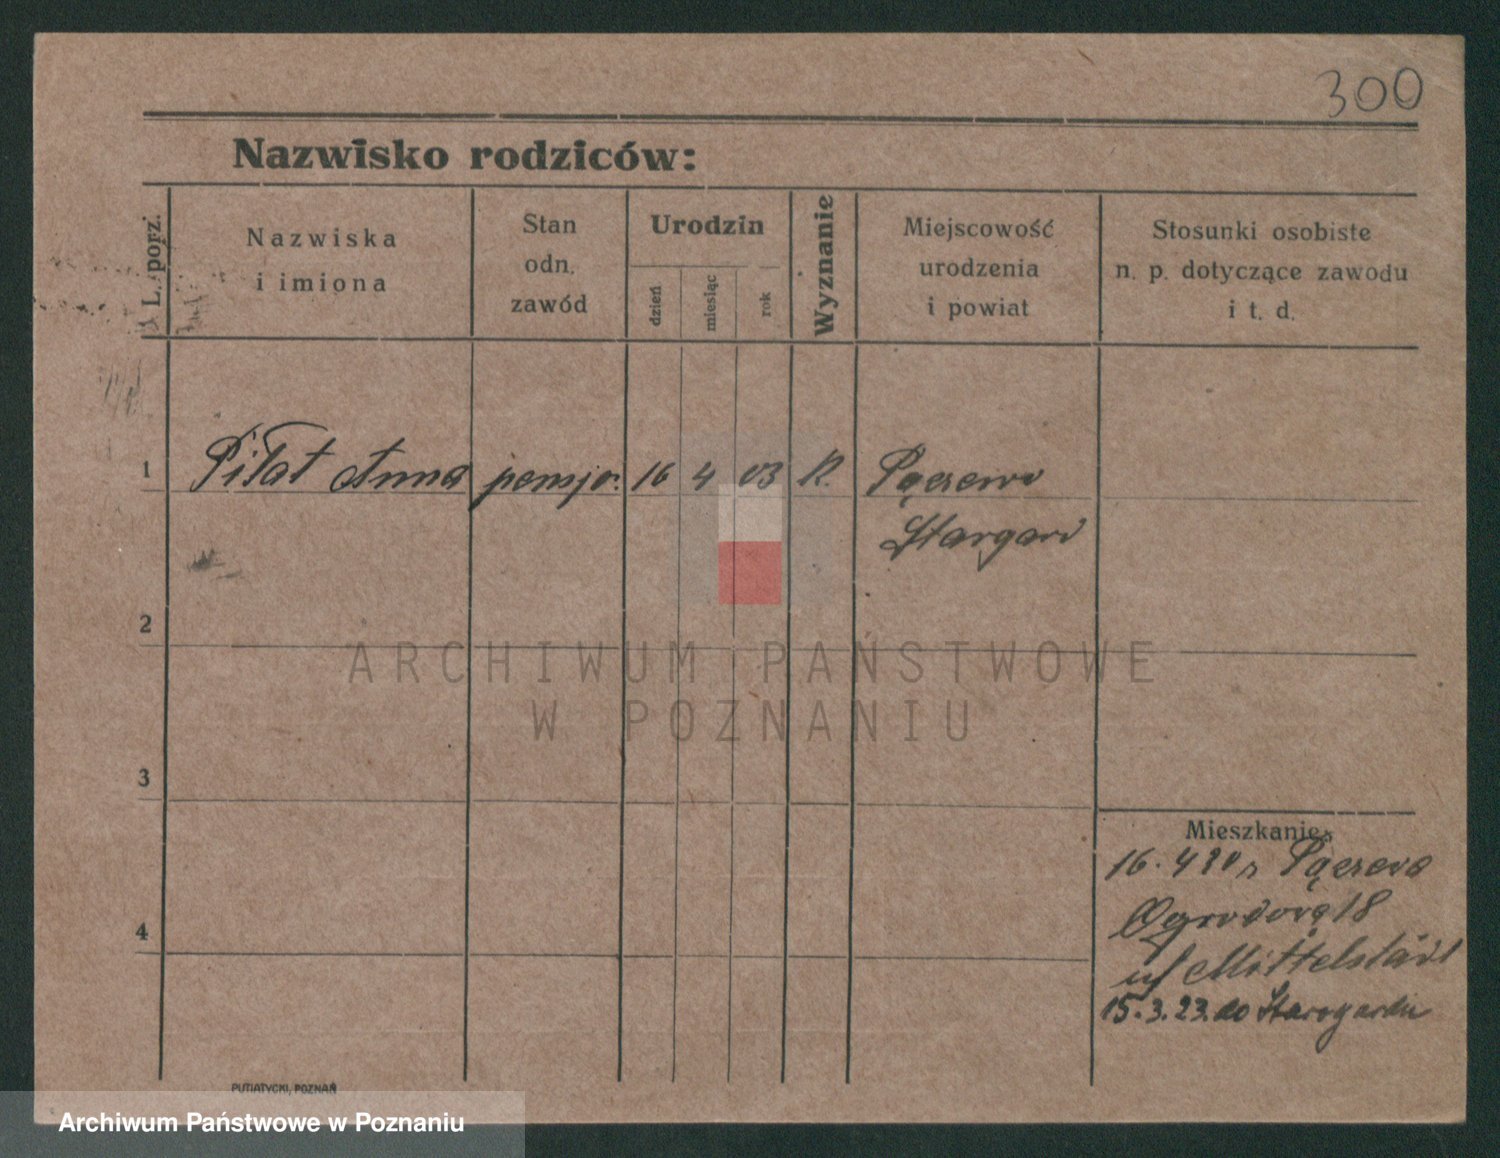 300
Nazwisko rodziców:
L. porz.
Nazwiska
i imiona
Stan
odn.
zawód
Urodzin
dzień
miesiąc
rok
Wyznanie
Miejscowość
urodzenia
i powiat
Stosunki osobiste
n. p. dotyczące zawodu
i t. d.
1 Piłat Anna pensjo. 16 4 03 R. Pączewo
Stargard
2
ARCHIWUM PAŃSTWOWE
W POZNANIU
3
Mieszkanie
16. 4 Pączewo
4
Ogrodowa 18
Mittelstädt
15.3.23. do Starogardu
PUTIATYCKI, POZNAŃ
Archiwum Państwowe w Poznaniu